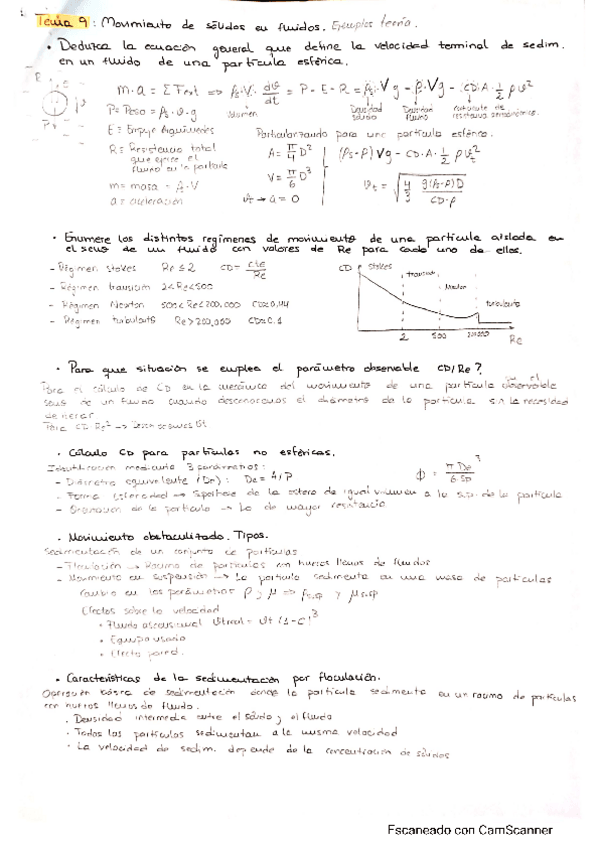 Tema 9: Movimiento de sólidos en fluidos. Ejemplos teoría.
• Deduzca la ecuación general que define la velocidad terminal de sedim.
en un fluido de una partícula esférica.
m·a = ΣFext => ρs·V· dv/dt = P - E - R = ρs·Vg - ρ·Vg - CD·A·1/2 ρv²
P= Peso = ρs·v·g
Volumen
Densidad sólido
Densidad fluido
E = Empuje Arquímedes
Particularizando para una partícula esférica.
R = Resistencia total
que ejerce el
fluido en la partícula
A = π/4 D²
(ρs-ρ)Vg - CD·A·1/2 ρv²t
V = π/6 D³
vt = √(4/3 g(ρs-ρ)D / CD·ρ)
m = masa = ρs·V
a = aceleración
vt → a = 0
• Enumere los distintos regímenes de movimiento de una partícula aislada en
el seno de un fluido con valores de Re para cada uno de ellos.
- Régimen stokes Re ≤ 2 CD = cte/Re
- Régimen transición 2<Re<500
- Régimen Newton 500<Re<200.000 CD≈0,44
- Régimen turbulento Re>200,000 CD≈0.1
CD
stokes
transición
Newton
turbulento
2
500
200000
Re
• Para que situación se emplea el parámetro observable CD/Re?
Para el cálculo de CD en la mecánica del movimiento de una partícula observable
seno de un fluido cuando desconocemos el diámetro de la partícula sin la necesidad
de iterar
Para CD Re² → Desconocemos vt
• Cálculo CD para partículas no esféricas.
Identificación mediante 3 parámetros:
- Diámetro equivalente (De): De = A/P
Φ = π De³ / 6 Sp
- Forma esfericidad → Superficie de la esfera de igual volumen a la s.p. de la partícula
- Orientación de la partícula → La de mayor resistencia
• Movimiento obstaculizado. Tipos.
Sedimentación de un conjunto de partículas
- Floculación → Racimo de partículas con huecos llenos de fluidos
- Movimiento en suspensión → La partícula sedimenta en una masa de partículas
Cambio en los parámetros ρ y μ => ρsusp y μsusp
Efectos sobre la velocidad
• Fluido ascensional Vtreal = Vt (1-C)³
• Efecto pared.
• Características de la sedimentación por floculación.
Operación básica de sedimentación donde la partícula sedimenta en un racimo de partículas
con huecos llenos de fluido.
• Densidad intermedia entre el sólido y el fluido
• Todas las partículas sedimentan a la misma velocidad
• La velocidad de sedim. depende de la concentración de sólidos
Escaneado con CamScanner